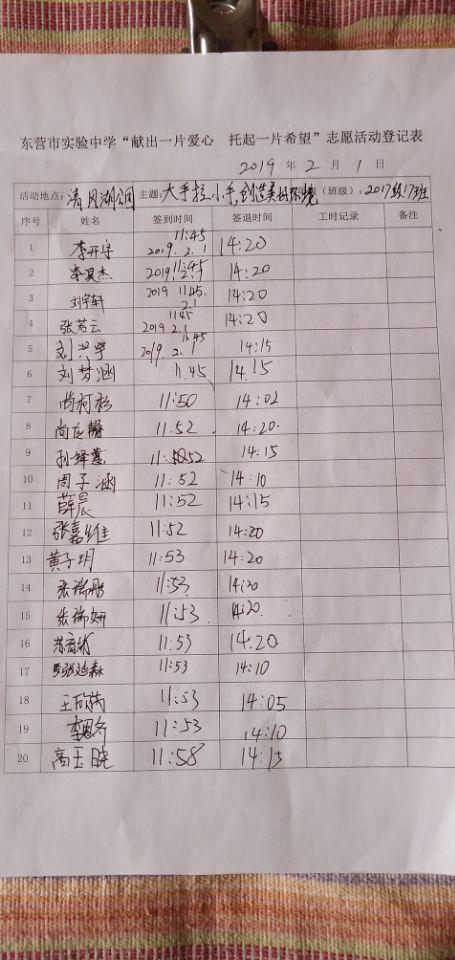 东营市实验中学“献出一片爱心 托起一片希望”志愿活动登记表
2019 年 2 月 1 日
活动地点：清风湖公园 主题：大手拉小手,创造美好环境（班级）：2017级17班
序号 姓名 签到时间 签退时间 工时记录 备注
1 李开宇 11:45 2019.2.1 14:20
2 李昊杰 11:45 2019.2.1 14:20
3 刘宇轩 2019 11:45 2.1 14:20
4 张若云 11:45 2019 2.1 14:20
5 刘兴宇 11:45 2019.2.1 14:15
6 刘梦涵 11:45 14:15
7 尚柯杉 11:50 14:02
8 尚 11:52 14:20
9 孙绎蕙 11:52 14:15
10 周子涵 11:52 14:10
11 薛晨 11:52 14:15
12 张嘉维 11:52 14:20
13 黄子玥 11:53 14:20
14 张瑞彤 11:53 14:20
15 张瑞妍 11:53 14:20
16 11:53 14:20
17 张迪森 11:53 14:10
18 王欣茜 11:53 14:05
19 11:53 14:10
20 高玉晓 11:58 14:15